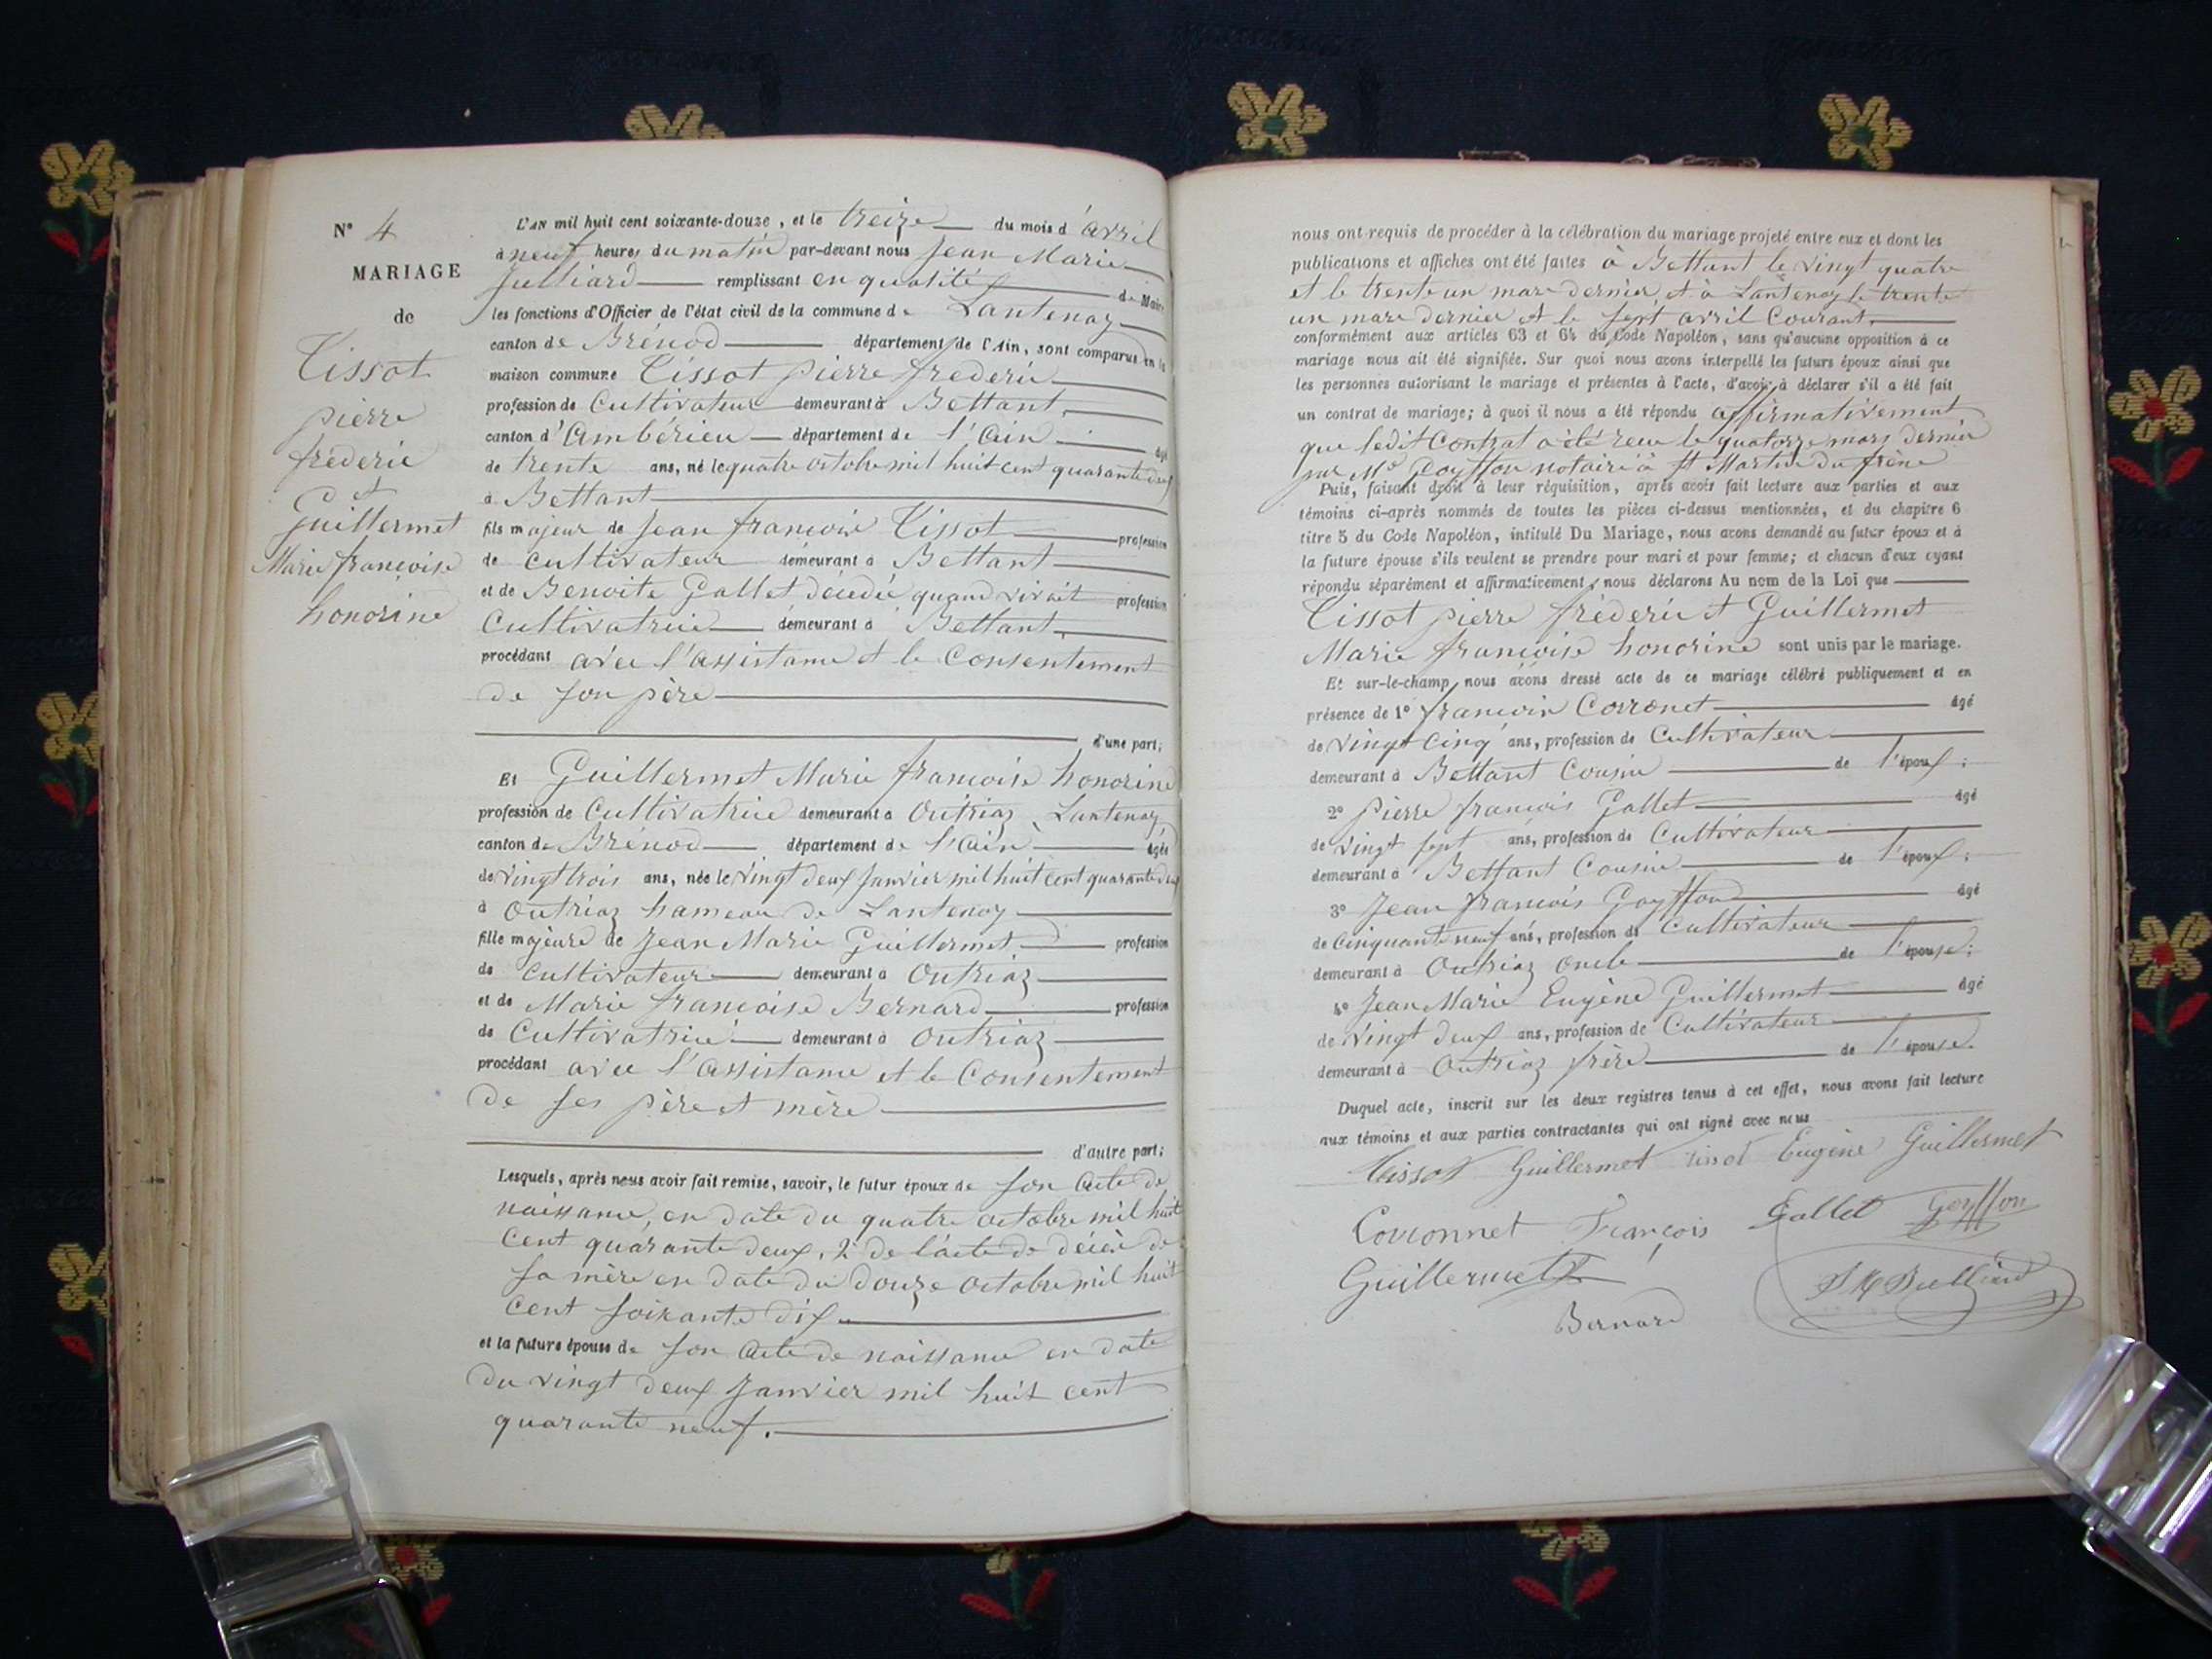 N° 4
MARIAGE
de
Tissot
pierre
fréderic
et
Guillermet
Marie françoise
honorine
L'AN mil huit cent soixante-douze, et le treize du mois d'avril
à neuf heures du matin par-devant nous Jean Marie
Julliard remplissant en qualité de Maire
les fonctions d'Officier de l'état civil de la commune de Lantenay
canton de Brénod département de l'Ain, sont comparus en la
maison commune Tissot pierre fréderic
profession de Cultivateur demeurant à Bettant,
canton d'Ambérieu département de l'Ain âgé
de trente ans, né le quatre octobre mil huit cent quarante deux
à Bettant
fils majeur de Jean françois Tissot profession
de cultivateur demeurant à Bettant
et de Benoite Gallet décédée quand vivait profession
Cultivatrice demeurant à Bettant,
procédant avec l'assistance et le Consentement
de son père
d'une part;
Et Guillermet Marie françoise honorine
profession de Cultivatrice demeurant à Outriaz, Lantenay
canton de Brénod département de l'Ain âgée
de vingt trois ans, née le vingt deux Janvier mil huit cent quarante
à Outriaz hameau de Lantenay
fille majeure de Jean Marie Guillermet profession
de Cultivateur demeurant à Outriaz
et de Marie françoise Bernard profession
de Cultivatrice demeurant à Outriaz
procédant avec l'assistance et le Consentement
de ses père et mère
d'autre part;
Lesquels, après nous avoir fait remise, savoir, le futur époux de son acte de
naissance, en date du quatre octobre mil huit
cent quarante deux, 2° de l'acte de décès de
sa mère en date du douze octobre mil huit
cent soixante dix
et la future épouse de son acte de naissance en date
du vingt deux Janvier mil huit cent
quarante neuf.
nous ont requis de procéder à la célébration du mariage projeté entre eux et dont les
publications et affiches ont été faites à Bettant le vingt quatre
et le trente un mars dernier, et à Lantenay le trente
un mars dernier et le sept avril Courant,
conformément aux articles 63 et 64 du Code Napoléon, sans qu'aucune opposition à ce
mariage nous ait été signifiée. Sur quoi nous avons interpellé les futurs époux ainsi que
les personnes autorisant le mariage et présentes à l'acte, d'avoir à déclarer s'il a été fait
un contrat de mariage; à quoi il nous a été répondu affirmativement
que ledit Contrat a été reçu le quatorze mars dernier
par Me Goyffon notaire à St Martin du frêne
Puis, faisant droit à leur réquisition, après avoir fait lecture aux parties et aux
témoins ci-après nommés de toutes les pièces ci-dessus mentionnées, et du chapitre 6
titre 5 du Code Napoléon, intitulé Du Mariage, nous avons demandé au futur époux et à
la future épouse s'ils veulent se prendre pour mari et pour femme; et chacun d'eux ayant
répondu séparément et affirmativement, nous déclarons Au nom de la Loi que
Tissot pierre fréderic et Guillermet
Marie françoise honorine sont unis par le mariage.
Et sur-le-champ nous avons dressé acte de ce mariage célébré publiquement et en
présence de 1° françois Corronet âgé
de vingt cinq ans, profession de Cultivateur
demeurant à Bettant Cousin de l'époux;
2° pierre françois Gallet âgé
de vingt sept ans, profession de Cultivateur
demeurant à Bettant Cousin de l'époux;
3° Jean françois Goyffon âgé
de cinquante neuf ans, profession de cultivateur
demeurant à Outriaz oncle de l'épouse;
4° Jean Marie Eugène Guillermet âgé
de vingt deux ans, profession de Cultivateur
demeurant à Outriaz frère de l'épouse.
Duquel acte, inscrit sur les deux registres tenus à cet effet, nous avons fait lecture
aux témoins et aux parties contractantes qui ont signé avec nous
Tissot Guillermet Tissot Eugène Guillermet
Corronnet François Gallet Goyffon
Guillermet
Bernard